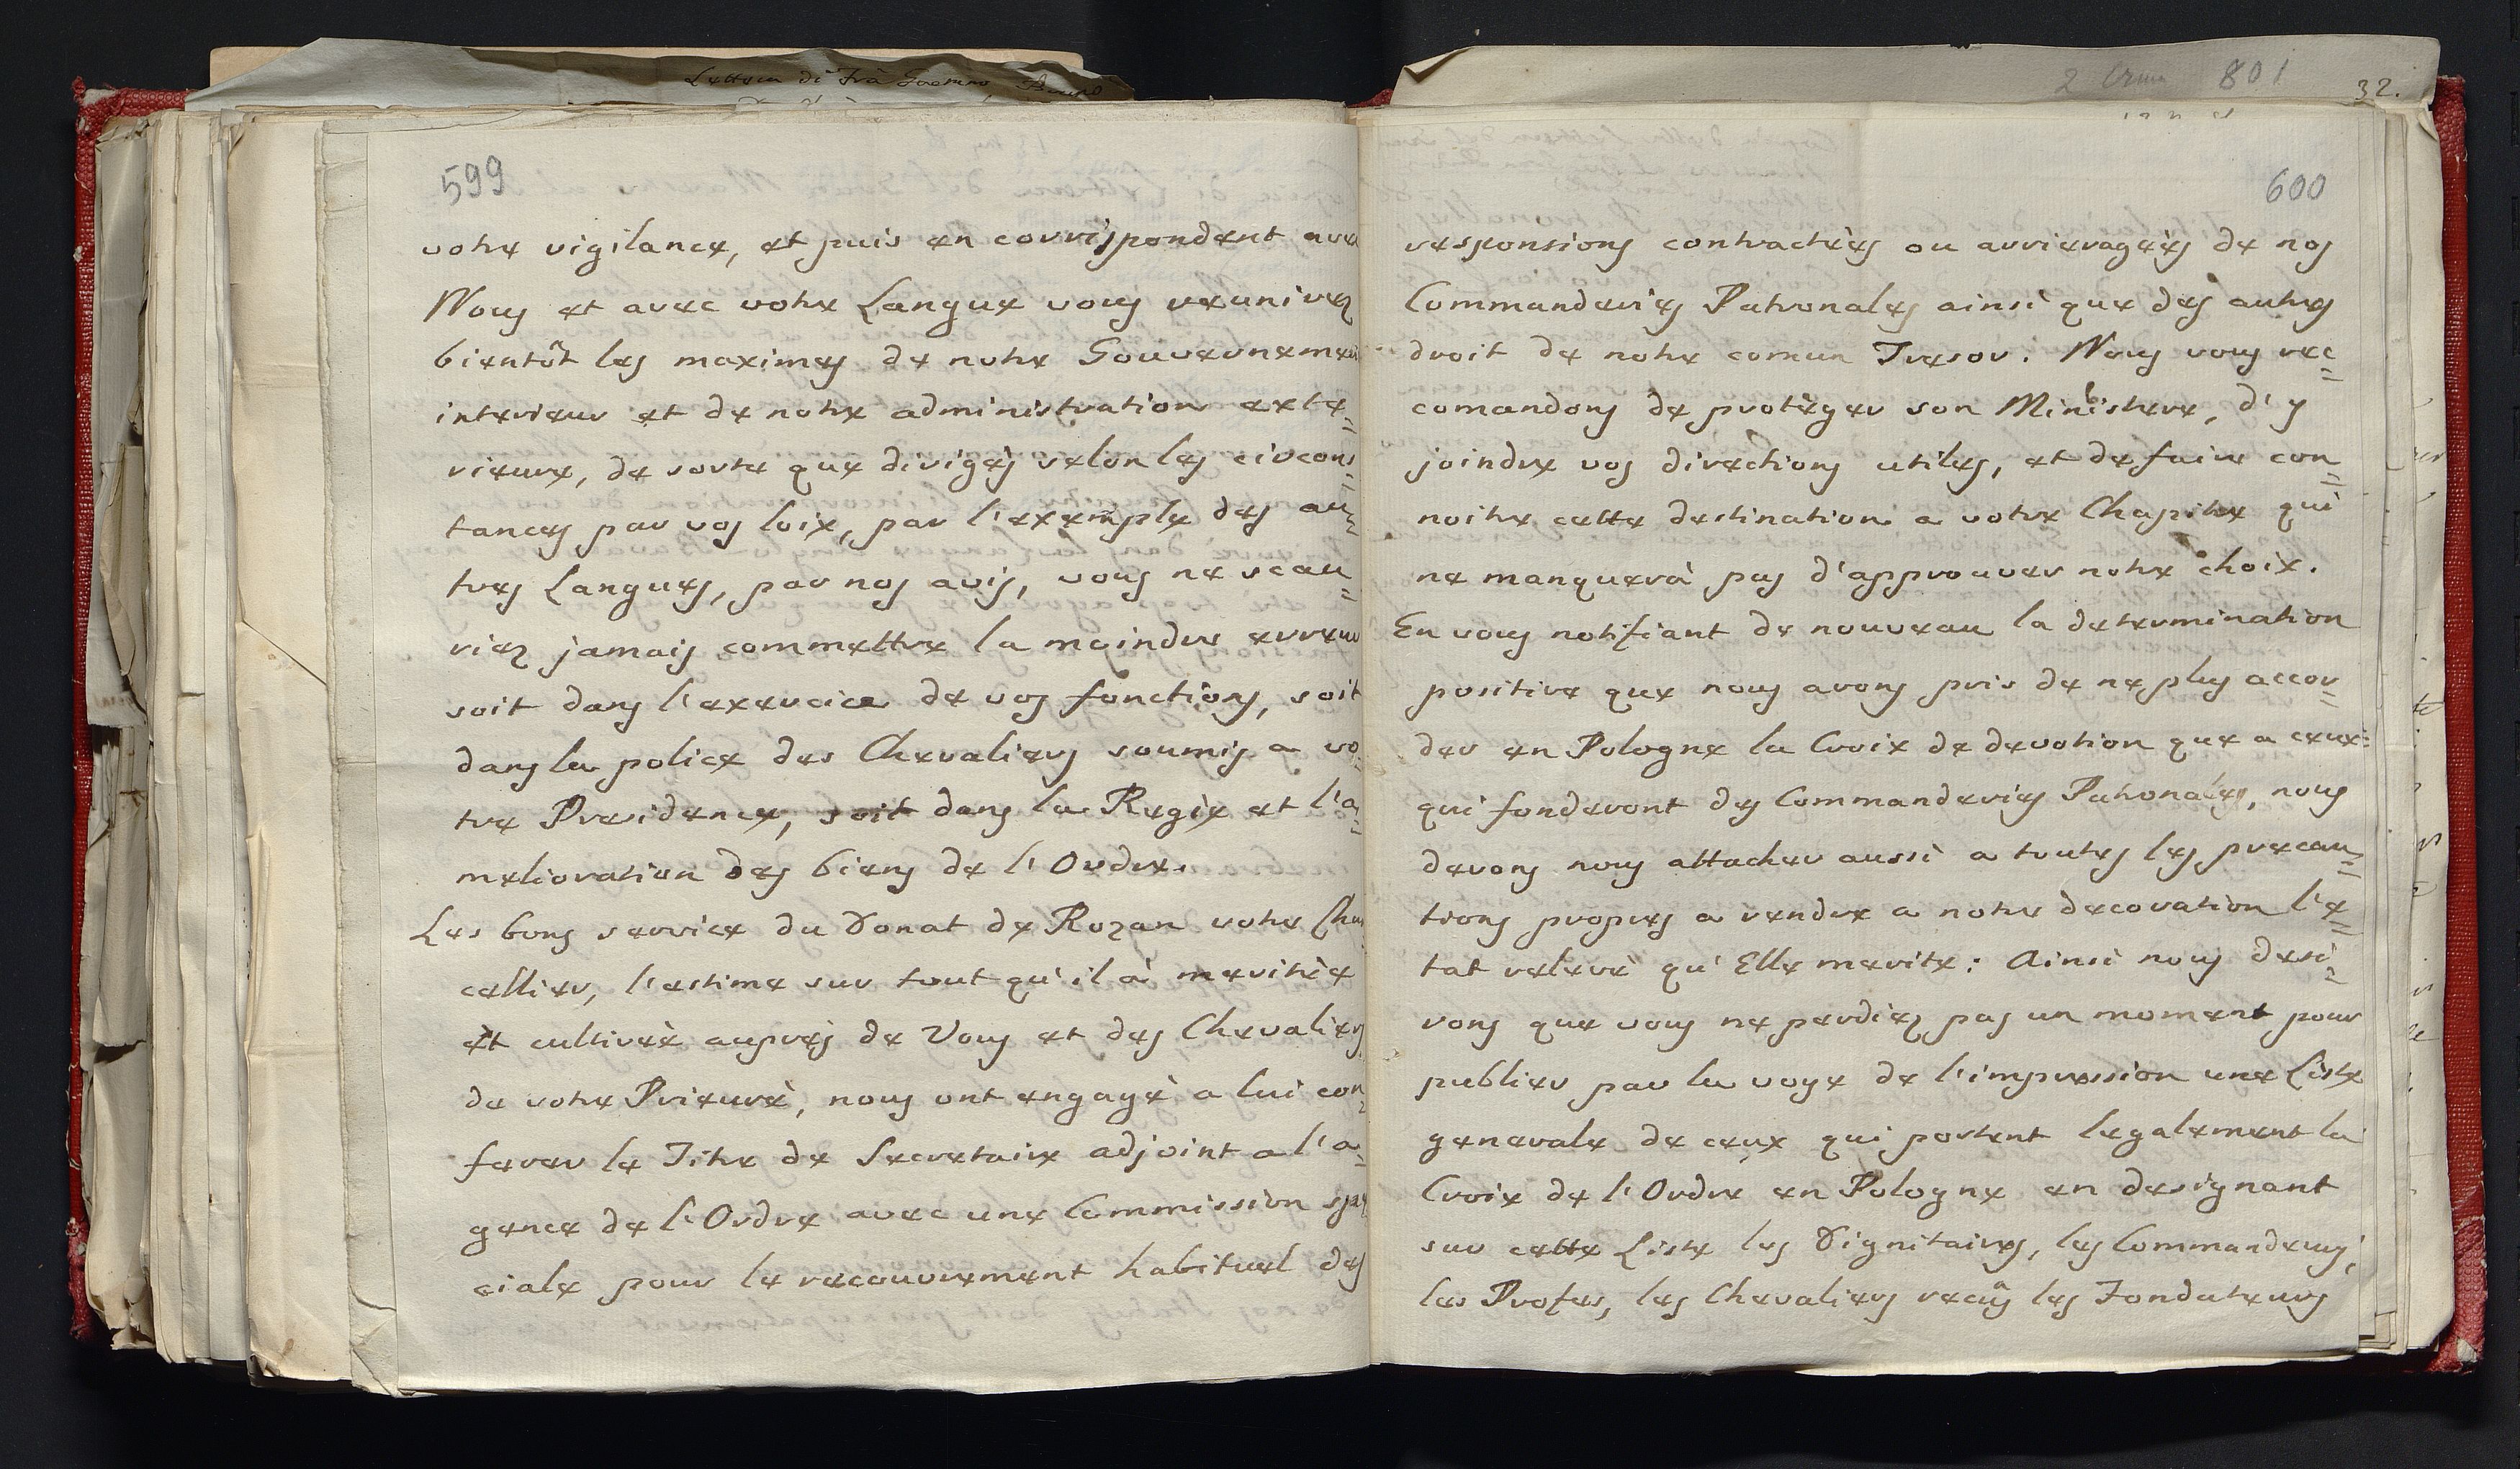 Lettera di Frà Gaetano Bruno
599
votre vigilance, et puis en corrispondent avec
Nous et avec votre Langue vous reunirez
bientôt les maximes de notre Gouvernemen
interieur et de notre administration exte=
rieure, de sorte que dirigés selon les circons=
tances par vos loix, par l'exemple des au=
tres Langues, par nos avis, vous ne scau=
riez jamais commettre la moindre erreur
soit dans l'exercice de vos fonctions, soit
dans la police des Chevaliers soumis a vo=
tre Presidence, soit dans la Regie et l'a=
melioration des biens de l'Ordre.
Les bons service du Donat de Rozan votre Chan
cellier, l'estime sur tout qu'il à meritèe
et cultivèe auprès de Vous et des Chevaliers
de votre Prieurè, nous ont engagè a lui con=
ferer le Titre de Secretaire adjoint a l'a=
gence de l'Ordre avec une Commission spe
ciale pour le recouvrement habituel des
2 801
32.
600
responsions contractèes ou arrieragèes de nos
Commanderies Patronales ainsi que des autres
droit de notre comun Tresor. Nous vous rec=
comandons de protèger son Ministere, d'y
joindre vos directions utiles, et de faire con=
noitre cette destination a votre Chapitre qui
ne manquerà pas d'approuver notre choix.
En vous notifiant de nouveau la determination
positive que nous avons pris de ne plus accor=
der en Pologne la Croix de devotion que a ceux
qui fonderont des Commanderies Patronales, nous
devons nous attacher aussi a toutes les precau=
tions propres a rendre a notre decoration l'e=
tat relevè qu'Elle merite: Ainsi nous desi=
rons que vous ne perdiez pas un moment pour
publier par la voye de l'impression une Liste
generale de ceux qui portent legalement la
Croix de l'Ordre en Pologne en designant
sur cette Liste les Dignitaires, les Commandeurs,
les Profes, les Chevaliers reçûs les Fondateurs